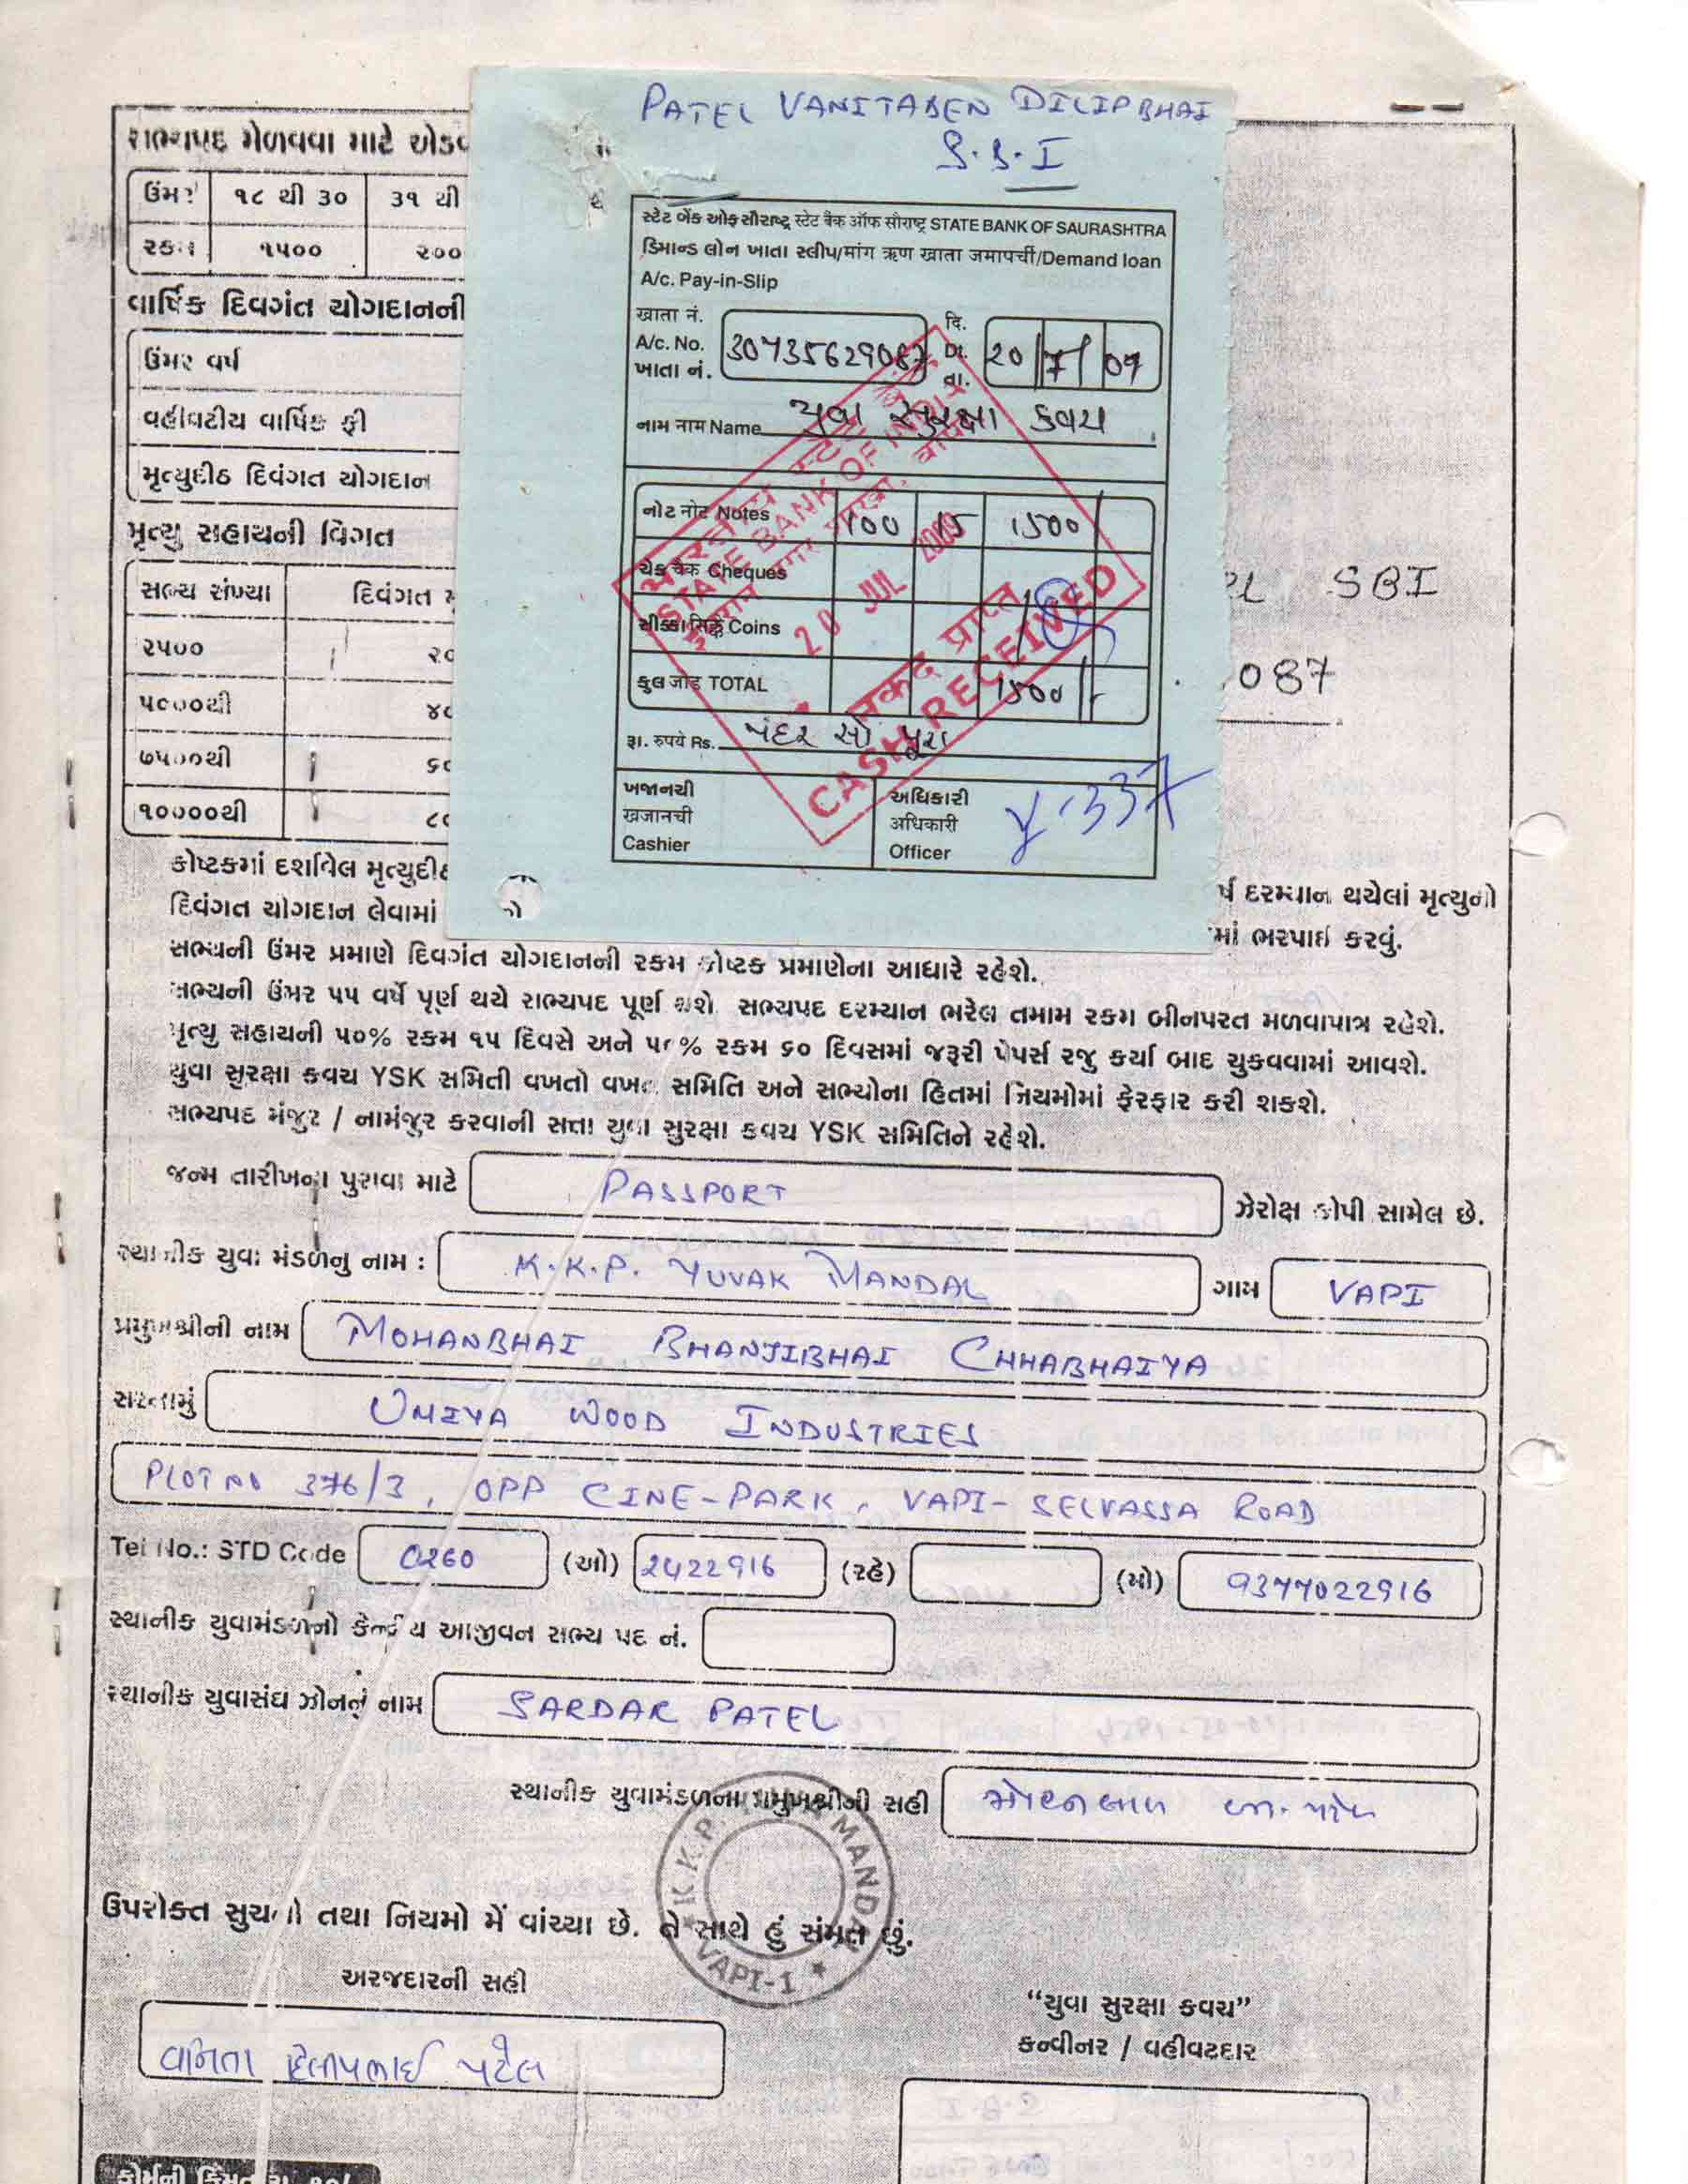 PATEL VANITABEN DILIPBHAI
S.B.I
સભ્યપદ મેળવવા માટે
ઉંમર ૧૮ થી ૩૦ ૩૧ થી
રકમ ૧૫૦૦ ૨૦૦
વાર્ષિક દિવગંત યોગદાનની
ઉંમર વર્ષ
વહીવટીય વાર્ષિક ફી
મૃત્યુદીઠ દિવંગત યોગદાન
મૃત્યુ સહાયની વિગત
સભ્ય સંખ્યા દિવંગત
૨૫૦૦
૫૦૦૦થી
૭૫૦૦થી
૧૦૦૦૦થી
સ્ટેટ બેંક ઓફ સૌરાષ્ટ્ર स्टेट बैंक ऑफ सौराष्ट्र STATE BANK OF SAURASHTRA
ડિમાન્ડ લોન ખાતા સ્લીપ/मांग ऋण खाता जमापर्ची/Demand loan
A/c. Pay-in-Slip
खाता नं. दि.
A/c. No. 30735629087 Dt. 20/7/09
ખાતા નં. તા.
નામ नाम Name યુવા સુરક્ષા કવચ
નોટ नोट Notes 100 15 1500
ચેક चैक Cheques
સીક્કા सिक्के Coins
કુલ जोड TOTAL 1500/-
રૂા. रुपये Rs. પંદર સો પૂરા
ખજાનચી અધિકારી
खजानची अधिकारी
Cashier Officer
भारतीय स्टेट बैंक
STATE BANK OF INDIA
20 JUL 2009
नकद प्राप्त
CASH RECEIVED
SBI
087
કોષ્ટકમાં દર્શાવેલ મૃત્યુદીઠ વર્ષ દરમ્યાન થયેલાં મૃત્યુનો
દિવંગત યોગદાન લેવામાં માં ભરપાઈ કરવું.
સભ્યની ઉંમર પ્રમાણે દિવગંત યોગદાનની રકમ કોષ્ટક પ્રમાણેના આધારે રહેશે.
સભ્યની ઉંમર ૫૫ વર્ષે પૂર્ણ થયે સભ્યપદ પૂર્ણ થશે સભ્યપદ દરમ્યાન ભરેલ તમામ રકમ બીનપરત મળવાપાત્ર રહેશે.
મૃત્યુ સહાયની ૫૦% રકમ ૧૫ દિવસે અને ૫૦% રકમ ૬૦ દિવસમાં જરૂરી પેપર્સ રજુ કર્યા બાદ ચુકવવામાં આવશે.
યુવા સુરક્ષા કવચ YSK સમિતી વખતો વખત સમિતિ અને સભ્યોના હિતમાં નિયમોમાં ફેરફાર કરી શકશે.
સભ્યપદ મંજુર / નામંજુર કરવાની સત્તા યુવા સુરક્ષા કવચ YSK સમિતિને રહેશે.
જન્મ તારીખના પુરાવા માટે PASSPORT ઝેરોક્ષ કોપી સામેલ છે.
સ્થાનીક યુવા મંડળનુ નામ : K.K.P. YUVAK MANDAL ગામ VAPI
પ્રમુખશ્રીની નામ MOHANBHAI BHANJIBHAI CHHABHAIYA
સરનામું UMIYA WOOD INDUSTRIES
PLOT NO 376/3, OPP CINE-PARK, VAPI-SELVASSA ROAD
Tel No.: STD Code 0260 (ઓ) 2422916 (રહે) (મો) 9377022916
સ્થાનીક યુવામંડળનો કેન્દ્રીય આજીવન સભ્ય પદ નં.
સ્થાનીક યુવાસંઘ ઝોનનું નામ SARDAR PATEL
સ્થાનીક યુવામંડળના પ્રમુખશ્રીની સહી
K.K.P. MANDAL
VAPI-1
ઉપરોક્ત સુચનો તથા નિયમો મેં વાંચ્યા છે. તે સાથે હું સંમત છું.
અરજદારની સહી
વનિતા દિલીપભાઈ પટેલ
"યુવા સુરક્ષા કવચ"
કન્વીનર / વહીવટદાર